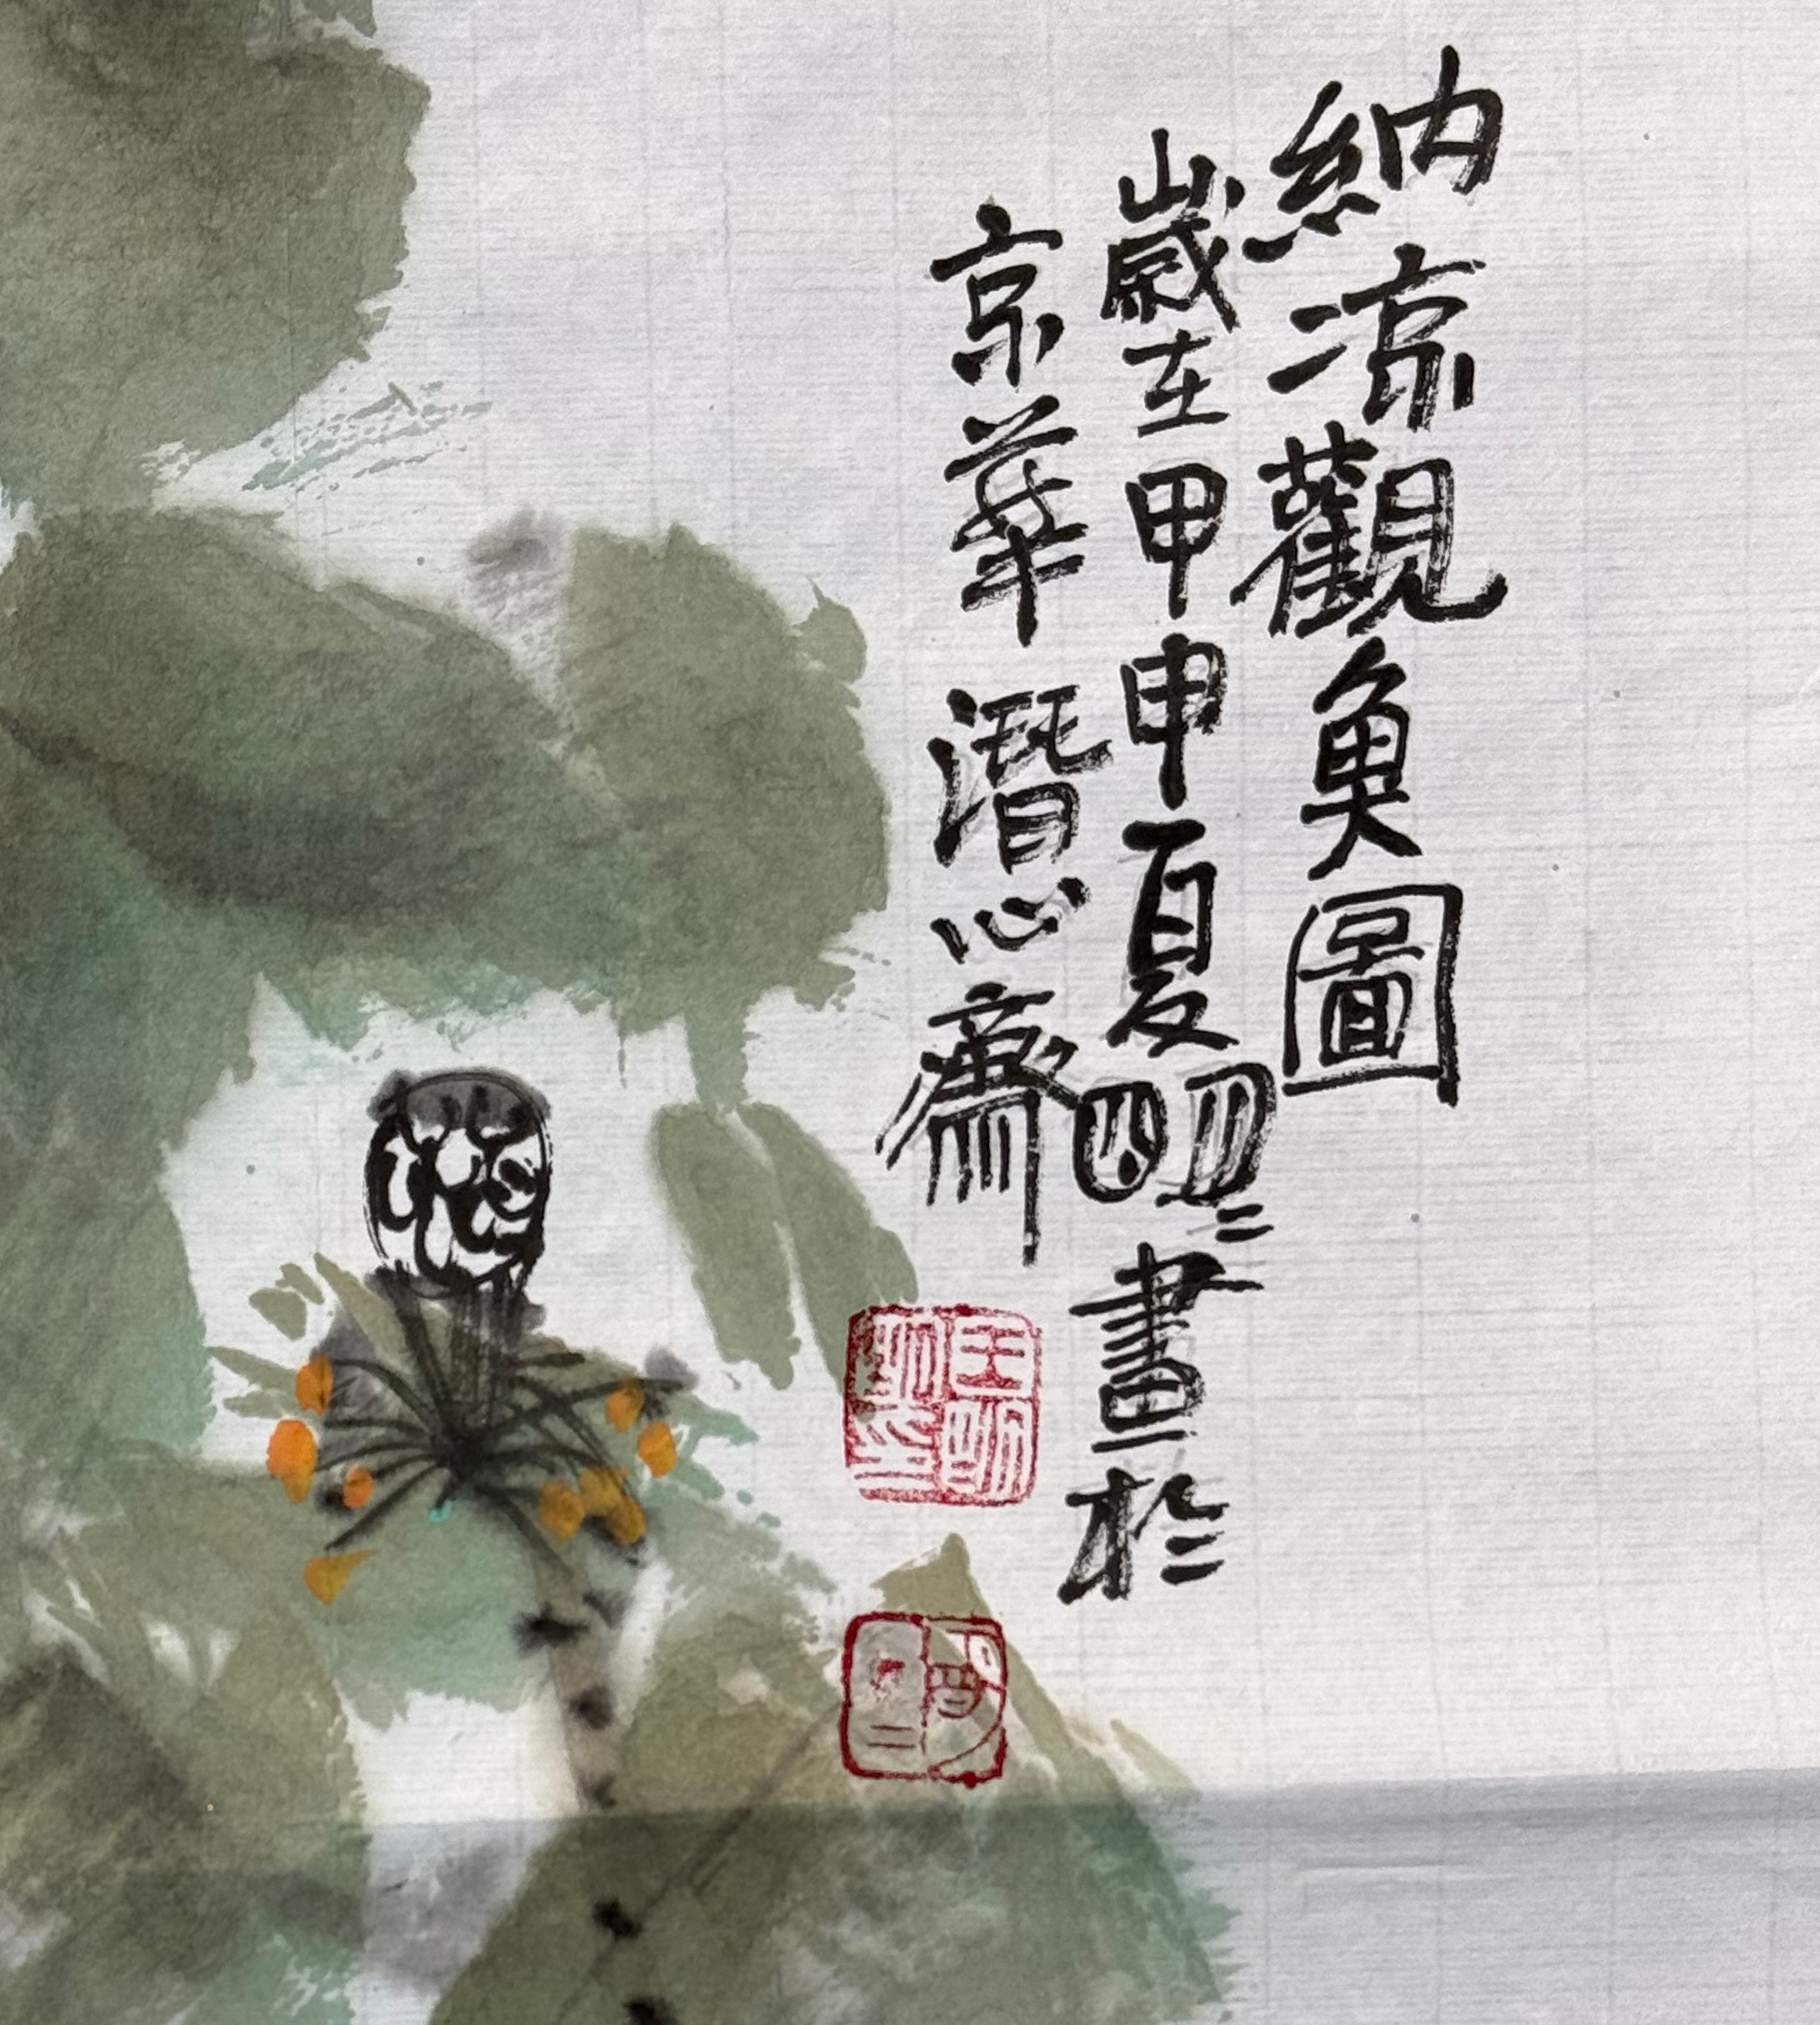 納凉觀魚圖
歲在甲申夏明〻畫於
京華潛心齋
王明明印